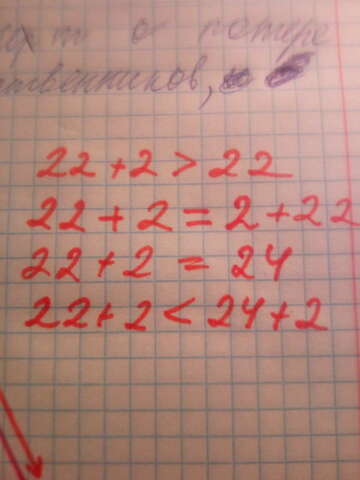 о потере
ственников,
22+2>22
22+2=2+22
22+2=24
22+2<24+2